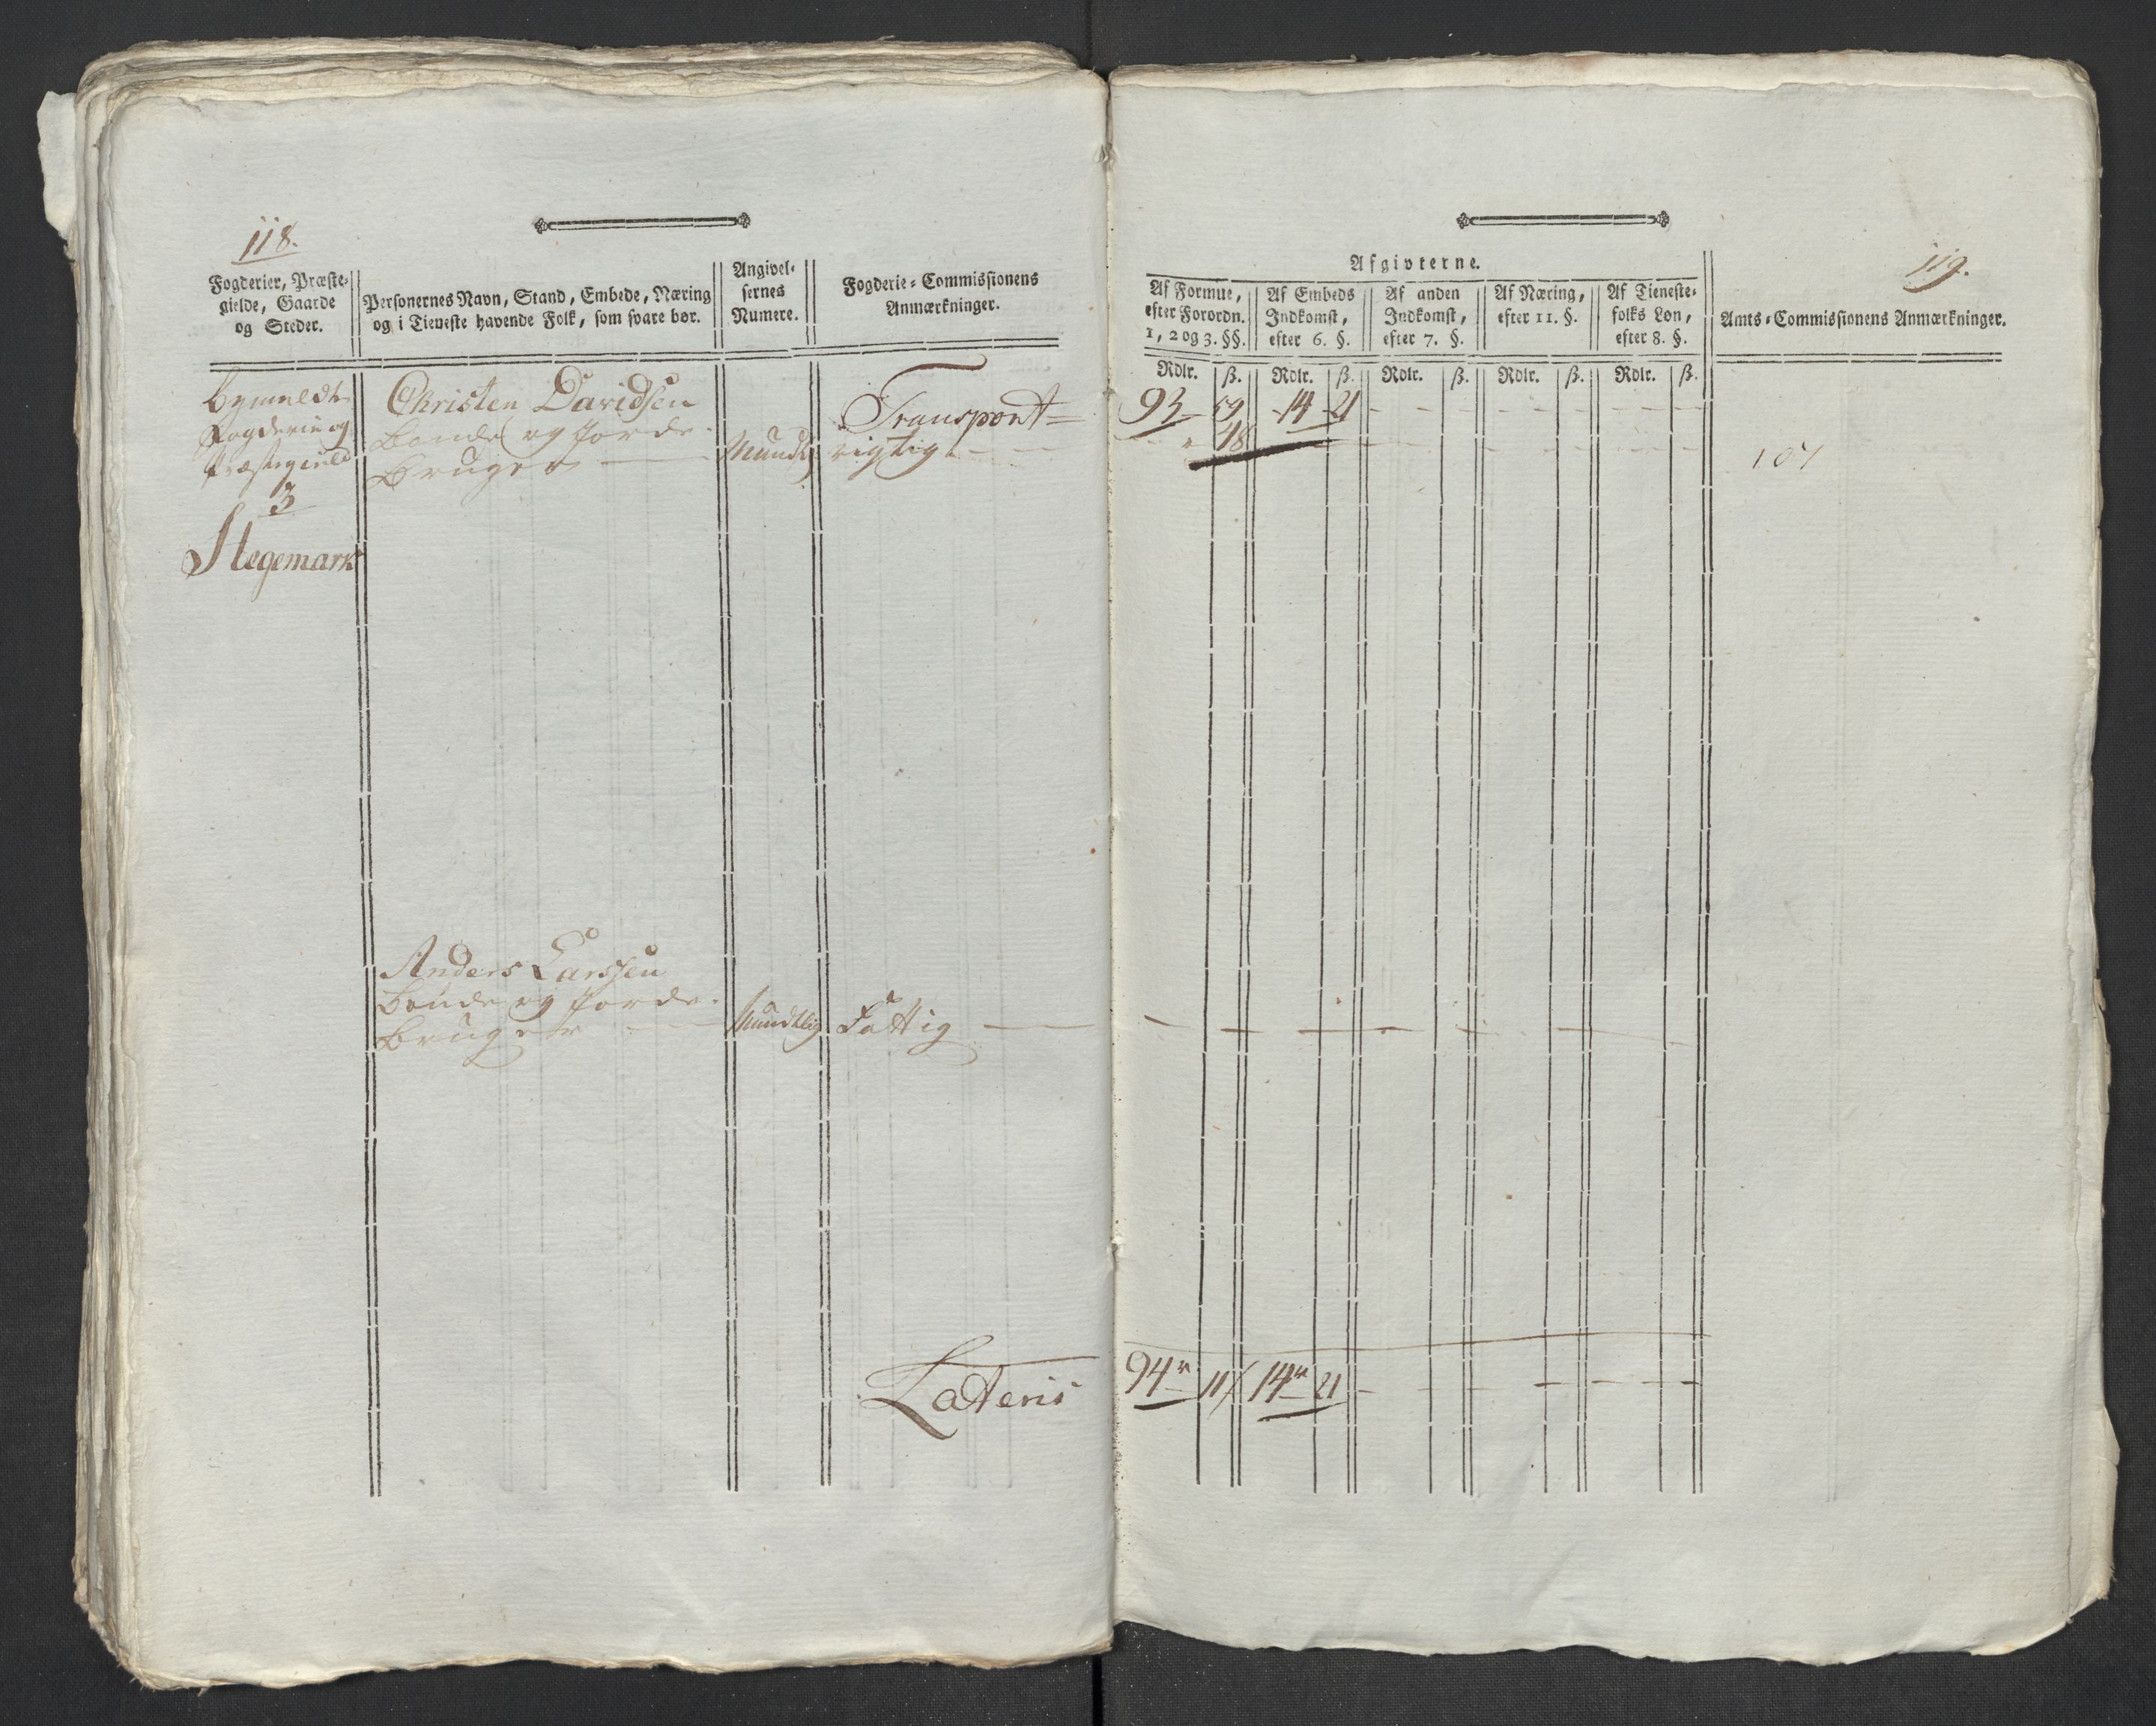 118.
Fogderier, Præste-
gielde, Gaarde
og Steder.
Personernes Navn, Stand, Embede, Næring
og i Tieneste havende Folk, som svare bør.
Angivel-
sernes
Numere.
Fogderie-Commissionens
Anmærkninger.
Fogderie og
Præstegield
3
Stegemark
Christen Davidsen
Bonde og Jorde-
Bruger
Mundtl
Transport
rigtig
Anders Larssen
Bonde og Jorde-
Bruger
Mundtlig
Fattig
Lateris
119.
Afgivterne.
Af Formue,
efter Forordn.
1, 2 og 3. §§.
Af Embeds
Indkomst,
efter 6. §.
Af anden
Indkomst,
efter 7. §.
Af Næring,
efter 11. §.
Af Tieneste-
folks Løn,
efter 8. §.
Amts-Commissionens Anmærkninger.
Rdlr. ß. Rdlr. ß. Rdlr. ß. Rdlr. ß. Rdlr. ß.
93 59 14 21
48
94 11 14 21